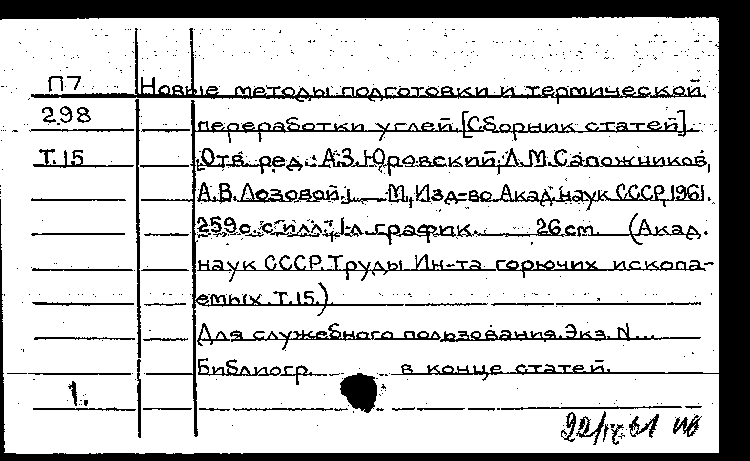 П7 Новые методы подготовки и термической
298 переработки углей. [Сборник статей].
Т.15 Отв. ред.: А.З.Юровский, Л.М.Сапожников,
А.В.Лозовой. М., Изд-во Акад. наук СССР, 1961.
259с. с илл.; 1 л. график. 26 cm. (Акад.
наук СССР. Труды Ин-та горючих ископа-
емых. Т.15.)
Для служебного пользования. Экз. N...
Библиогр. в конце статей.
1.